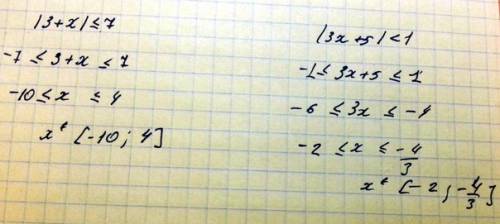 |3+x| ≤ 7
-7 ≤ 3+x ≤ 7
-10 ≤ x ≤ 4
x ϵ [-10; 4]
|3x+5| < 1
-1 ≤ 3x+5 ≤ 1
-6 ≤ 3x ≤ -4
-2 ≤ x ≤ -4/3
x ϵ [-2; -4/3]